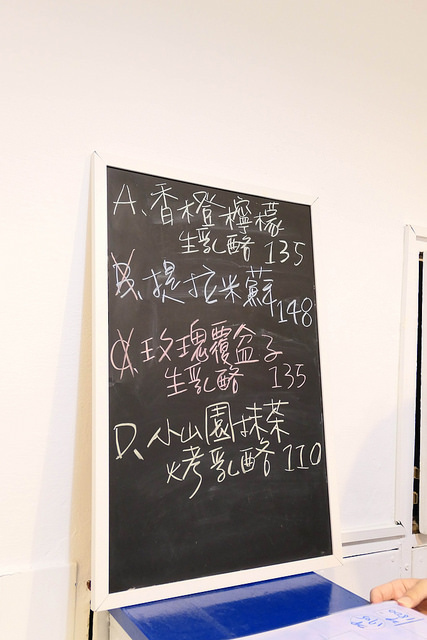 A、香橙檸檬
生乳酪 135
B、提拉米蘇
148
C、玫瑰覆盆子
生乳酪 135
D、小山園抹茶
烤乳酪 110